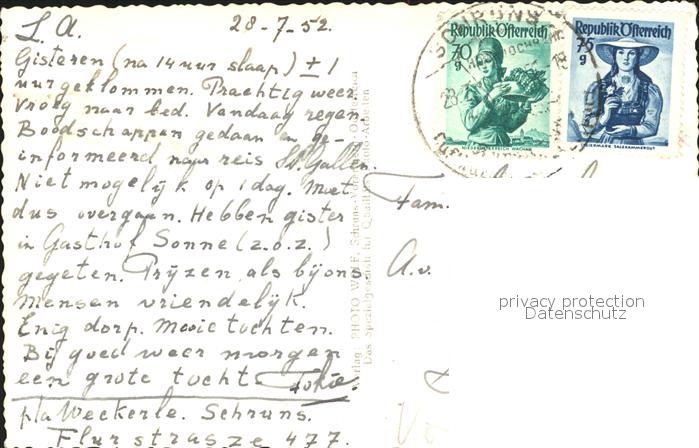 L. A. 28-7-52.
Gisteren (na 14 uur slaap) ± 1
uur geklommen. Prachtig weer.
Vroeg naar bed. Vandaag regen.
Boodschappen gedaan en ge-
informeerd naar reis St. Gallen.
Niet mogelijk op 1 dag. Moet
dus overgaan. Hebben gister
in Gasthof Sonne (z.o.z.)
gegeten. Prijzen als bij ons
Mensen vriendelijk.
Enig dorp. Mooie tochten.
Bij goed weer morgen
een grote tocht.
p/a Weckerle. Schruns.
Flurstrasze 477.
PHOTO
Schruns
Das Spezialgeschäft für
SCHRUNS
Republik Österreich
70 g
NIEDERÖSTERREICH WACHAU
Republik Österreich
75 g
STEIERMARK SALZKAMMERGUT
Fam.
A.v.
privacy protection
Datenschutz